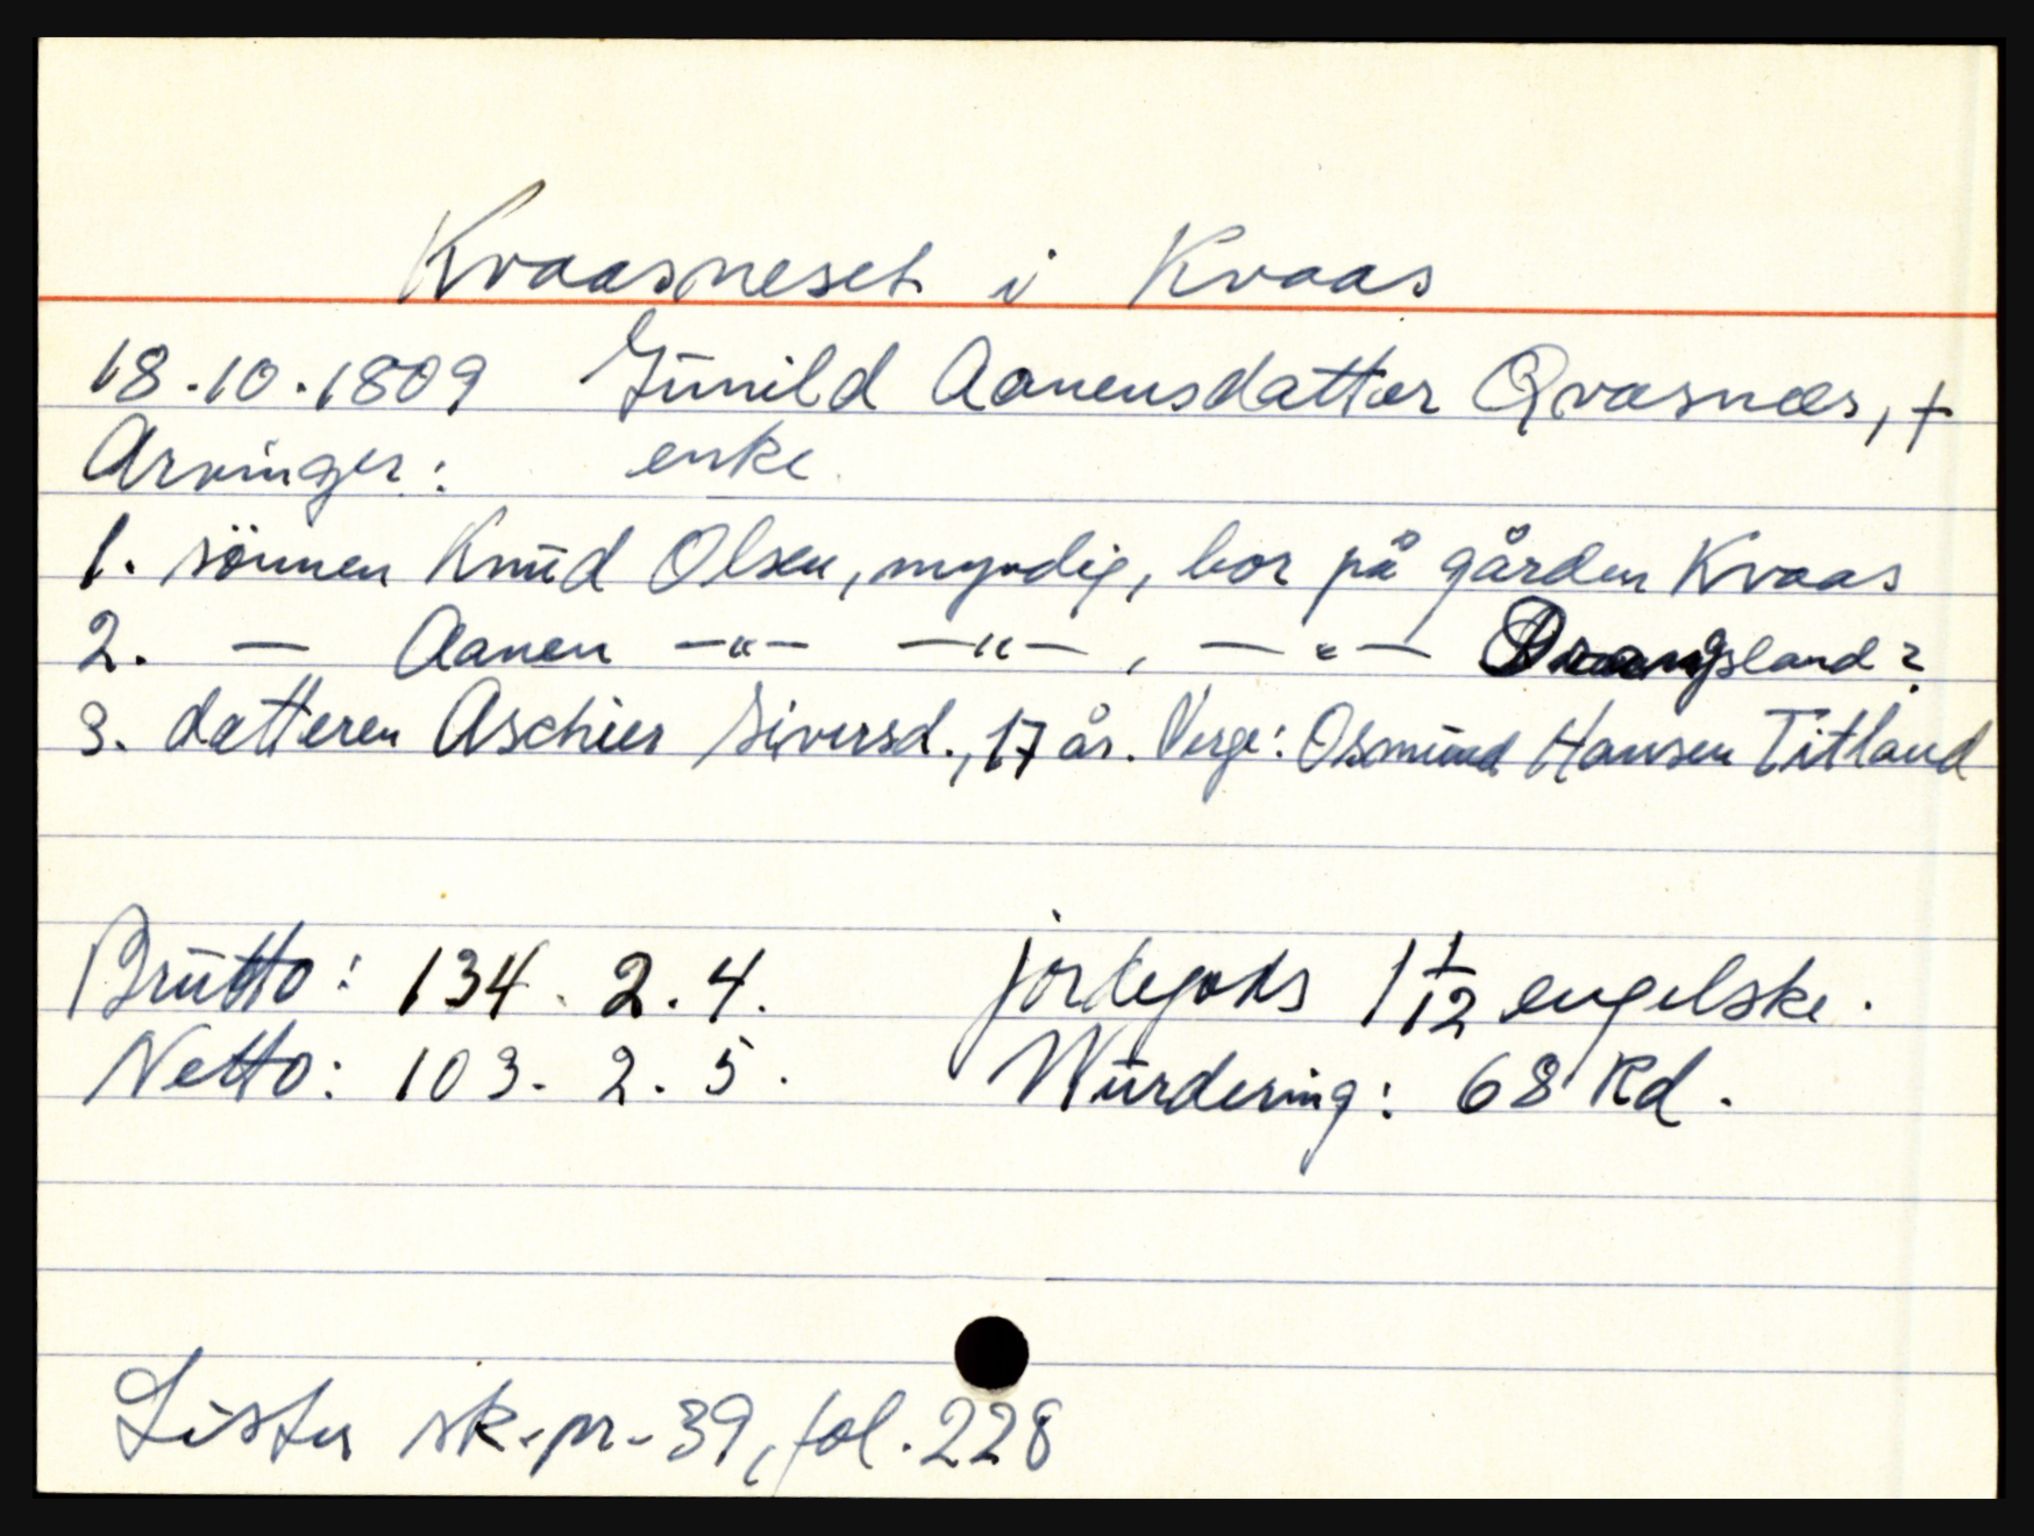 Kvaasneset i Kvaas
18.10.1809 Gunild Aanensdatter Qvasnæs, +
Arvinger: enke
1. sönnen Knud Olsen, myndig, bor på gården Kvaas
2. — Aanen —"— —"—, —"— Drangsland?
3. datteren Aschier Siversd., 17 år. Verge: Osmund Hansen Titland
Brutto: 134. 2. 4. jordegods 1 1/12 engelske.
Netto: 103. 2. 5. Wurdering: 68 Rd.
Lister sk.pr. 39, fol. 228